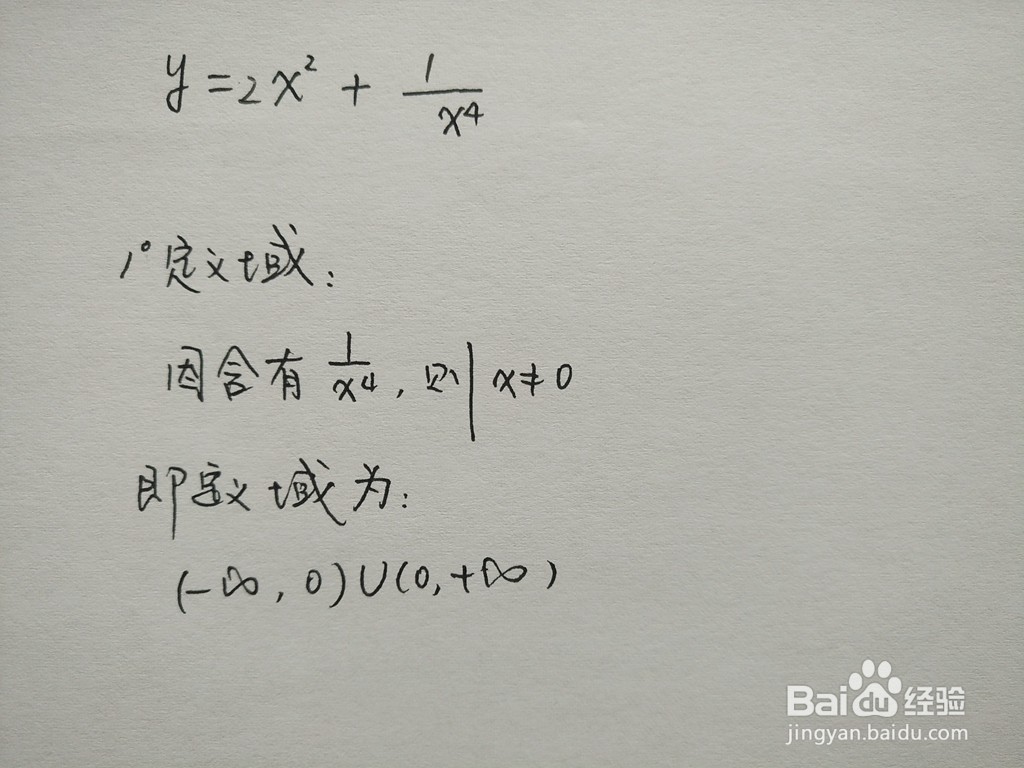 y=2x²+1/x⁴
1°定义域:
因含有1/x⁴,则|x≠0
即定义域为:
(-∞,0)∪(0,+∞)
Baidu经验
jingyan.baidu.com